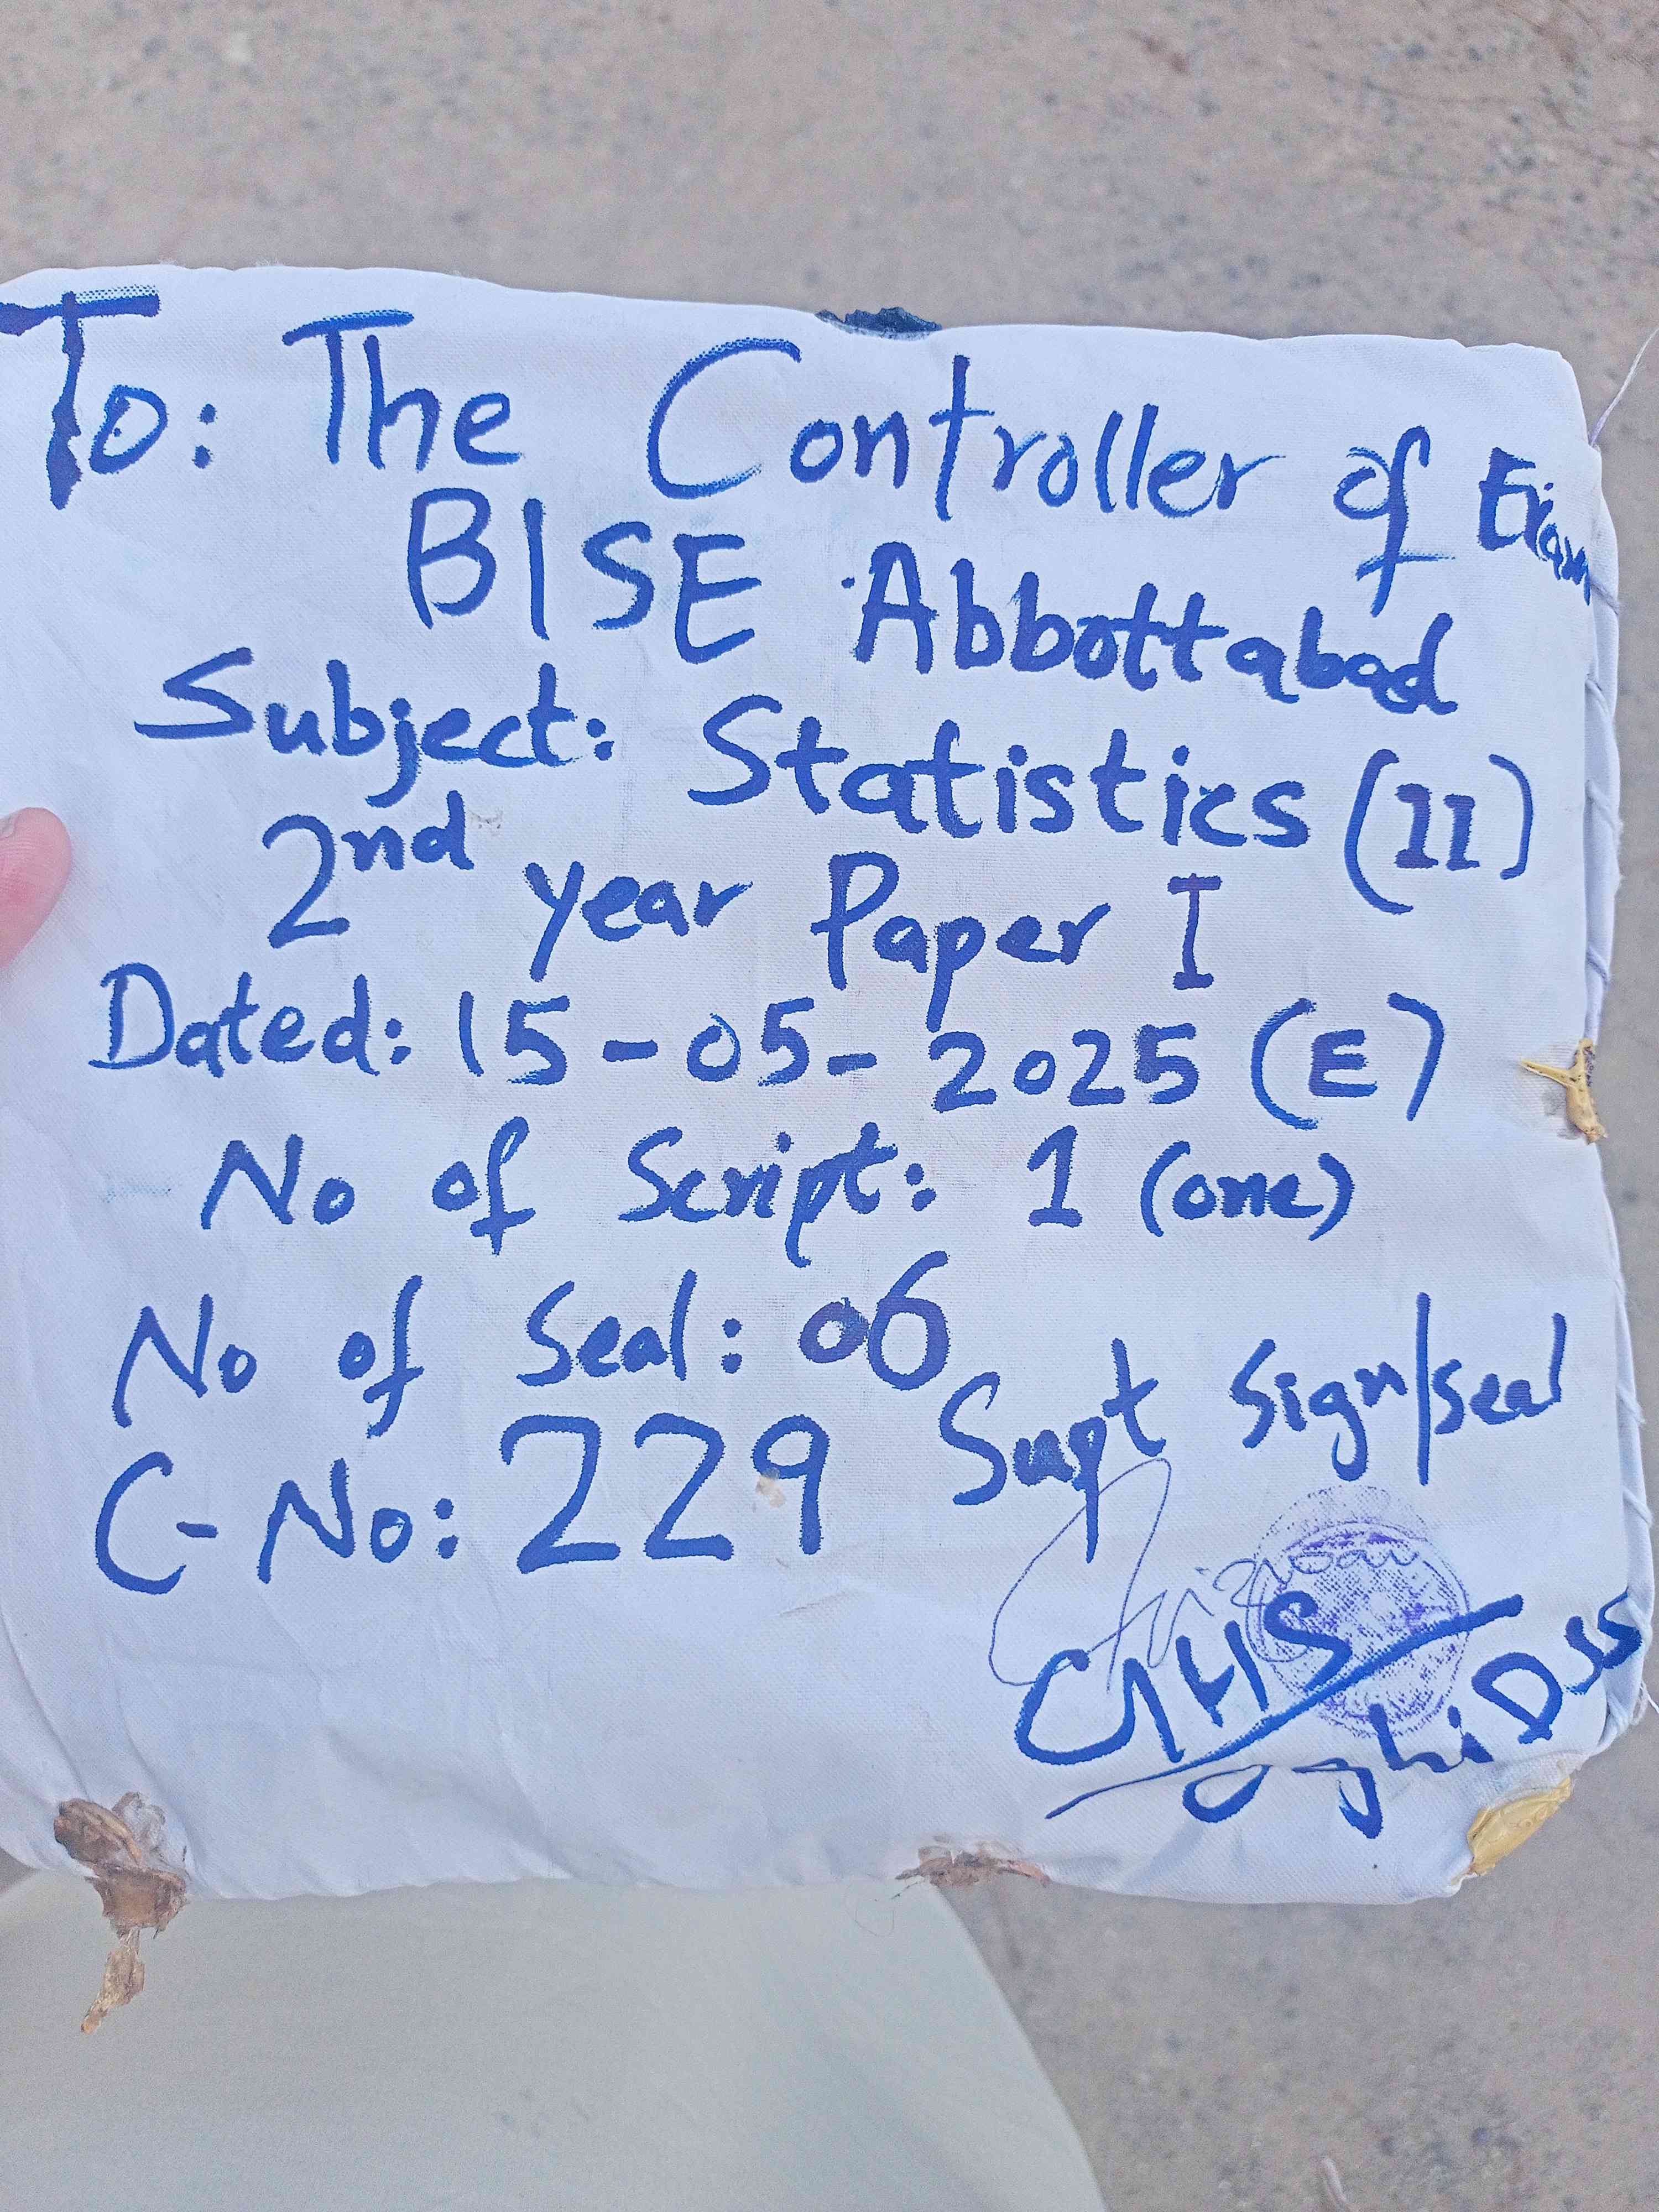 To: The Controller of Exam
BISE Abbottabad
Subject: Statistics (II)
2nd year Paper I
Dated: 15-05-2025 (E)
No of Script: 1 (one)
No of Seal: 06
C-No: 229 Supt Sign/seal
GHS
oghi